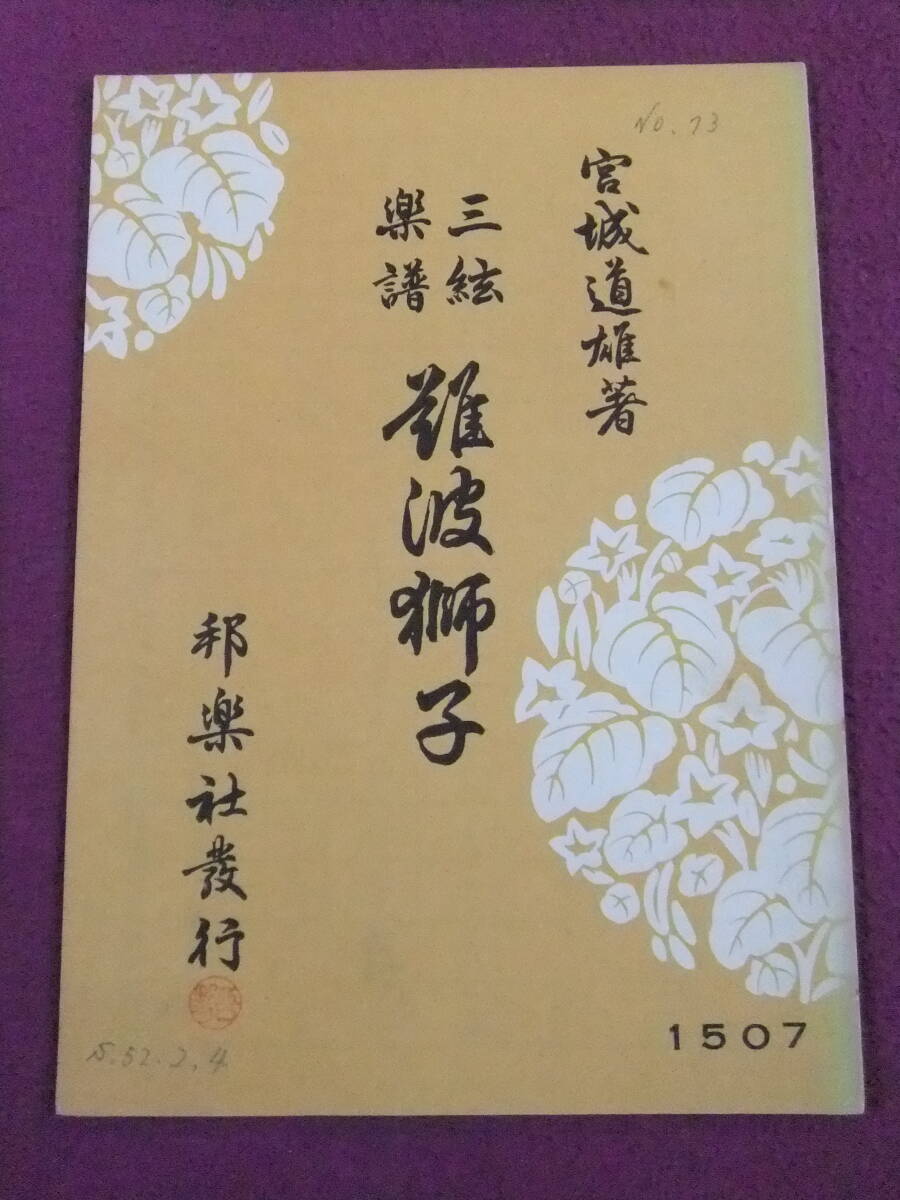 No. 73
宮城道雄著
三絃
楽譜
難波獅子
邦樂社發行
S. 52. 2. 4
1507